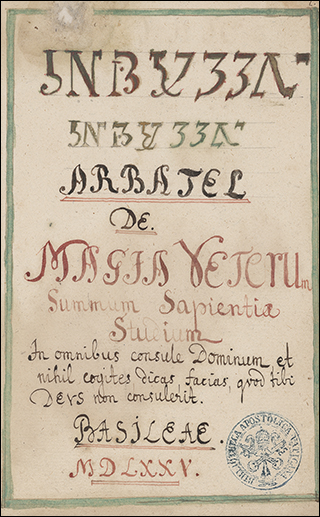 ARBATEL
DE.
MAGIA VETERUm
Summum Sapientiæ
Studium
In omnibus consule Dominum et
nihil cogites, dicas, facias, qvod tibi
DEVS non consulerit.
BASILEAE.
MDLXXV.
BIBLIOTHECA APOSTOLICA VATICANA